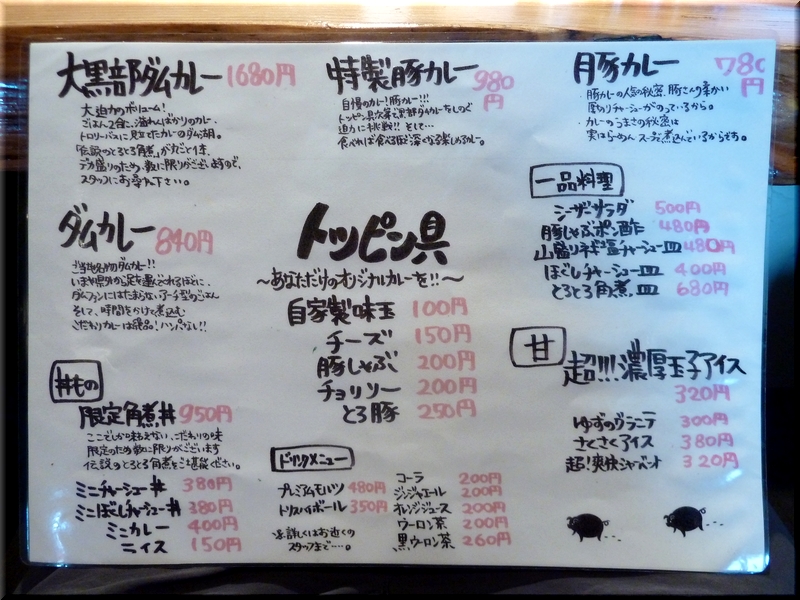 大黒部ダムカレー 1680円
大迫力のボリューム!
ごはん2合に、溢れんばかりのカレー、
トロリーバスに見立てたカレーのダム湖。
「伝説のとろとろ角煮」が丸ごと1本
デカ盛りのため、数に限りがございますので、
スタッフにお尋ね下さい。
特製豚カレー 980円
自慢のカレー!豚カレー!!!
トッピン具次第で黒部ダムカレーをしのぐ
迫力に挑戦!! そして…
食べれば食べる程深くなる楽しめるカレー。
豚カレー 780円
豚カレーの人気の秘密、豚さんの柔かい
厚切りチャーシューがのっているから。
カレーのうまさの秘密は
実はらーめんスープで煮込んでいるからです。
ダムカレー 840円
ご当地名物ダムカレー!!
いまや県外から足を運んでくれるほどに、
ダムファンにはたまらない、アーチ型のごはん
そして、時間をかけて煮込む
こだわりカレーは絶品!ハンパない!!
トッピン具
〜あなただけのオリジナルカレーを!!〜
自家製味玉 100円
チーズ 150円
豚しゃぶ 200円
チョリソー 200円
とろ豚 250円
一品料理
シーザーサラダ 500円
豚しゃぶポン酢 480円
山盛りネギ塩チャーシュー皿 480円
ほぐしチャーシュー皿 400円
とろとろ角煮皿 680円
丼もの
限定角煮丼 950円
ここでしか味わえない、こだわりの味
限定のため数に限りがございます
伝説のとろとろ角煮をご堪能ください。
ミニチャーシュー丼 380円
ミニほぐしチャーシュー丼 380円
ミニカレー 400円
ライス 150円
ドリンクメニュー
プレミアムモルツ 480円
トリスハイボール 350円
※詳しくはお近くの
スタッフまで……。
コーラ 200円
ジンジャエール 200円
オレンジジュース 200円
ウーロン茶 200円
黒ウーロン茶 260円
甘
超!!!濃厚玉子アイス
320円
ゆずのグラニテ 300円
さくさくアイス 380円
超!爽快シャーベット 320円